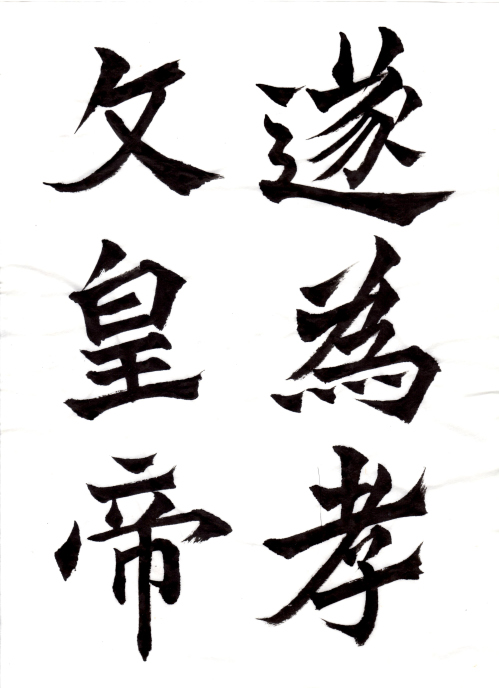 遂為孝
文皇帝